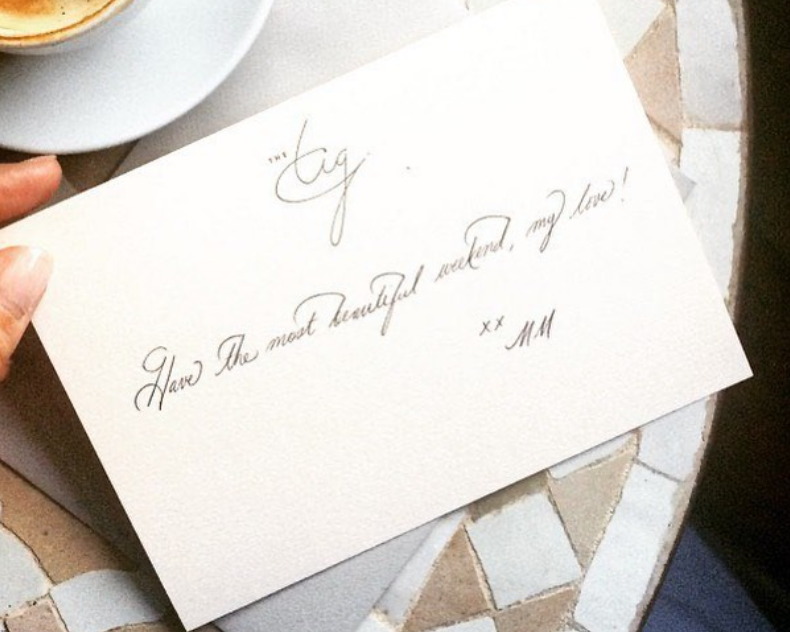 THE
tig
Have the most beautiful weekend, my love!
xx MM